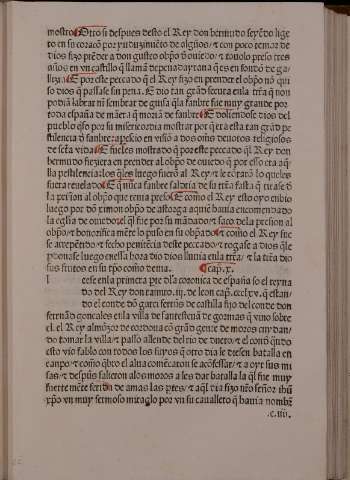 mostro. Otro si despues desto el Rey don bermudo seyẽdo lige
ro en su coraçõ por ynduzimiẽto de algũos/ τ con poco temor de
dios fizo prẽder a don gusteo obpo d̃ ouiedo/ τ touolo preso tres
años en vn castillo q̃ llamã de pena daytana q̃ es en fondõ de ga/
llizia. E por este peccado q̃ el Rey fizo en prender el obpo nõ qui
so dios q̃ passasse sin pena. E dio tan grãd secura enla trr̃a q̃ non
podiã labrar nĩ sembrar de guisa q̃ la fanbre fue muy grande por
toda españa de mãera q̃ moriã de fanbre. E doliendose dios del
pueblo q̃so por su misericordia mostrar por q̃ era esta tan grãd pe
stilencia d̃ fanbre: aparescio en visiõ a dos omẽs deuotos religiosos
de sctã vida. E fueles mostrado q̃ por este peccado q̃l Rey don
bermudo fiziera en prender al obpo de ouiedo q̃ por esso era aq̃
lla pestilencia. los q̃les luego fuerõ al Rey/ τ le cõtarõ lo queles
fuera reuelado. E q̃ nũca fanbre saldria de su trr̃a fasta q̃ sacase d̃
la prisiõn al obpo que tenia preso. E como el Rey esto oyo enbio
luego por dõ ximon obpo de astorga aquiẽ hauia encomendado
la eglia de ouiedo/ el q̃l fue por su mãdado/ τ saco dela prisiõn al
obpo/ τ honorifica mẽte lo puso en su obpado. τ como el Rey fue
se arrepẽtido/ τ fecho penitẽcia deste peccado/ τ rogasse a dios q̃le
p̃donase luego enessa hora dio dios lluuia enla trr̃a/ τ la trr̃a dio
sus frutos en su tp̃o como deuia. ¶ cap̃. x.
l eese enla primera pte d̃ la coronica de españa so el reyna
do del Rey don ramiro .iij. de leon cap̃. ccclxv. q̃ estan/
do el conde dõ garci ferrñs de castilla fijo del conde don
ferrnãdo gonçales enla villa de santesteuã de gormas q̃ vino sobre
el. el Rey almãçor de cordoua cõ grãd gente de moros cuydan/
do tomar la villa/ τ passo allende del rio de duero/ τ el cond q̃ndo
esto vio fablo con todos los suyos q̃ otro dia le diesen batalla en
canpo/ τ como q̃bro el alua començaron se acõfessar/ τ a oyr sus mi
sas/ τ despũs salieron alos moros a les dar batalla la q̃l fue muy
fuerte mẽte ferida de amas las ptes/ τ aq̃l dia fizo nr̃o señor ihũ
xp̃o vn muy fermoso miraglo por vn su cauallero q̃ hauia nombr̃
.c. iiij.